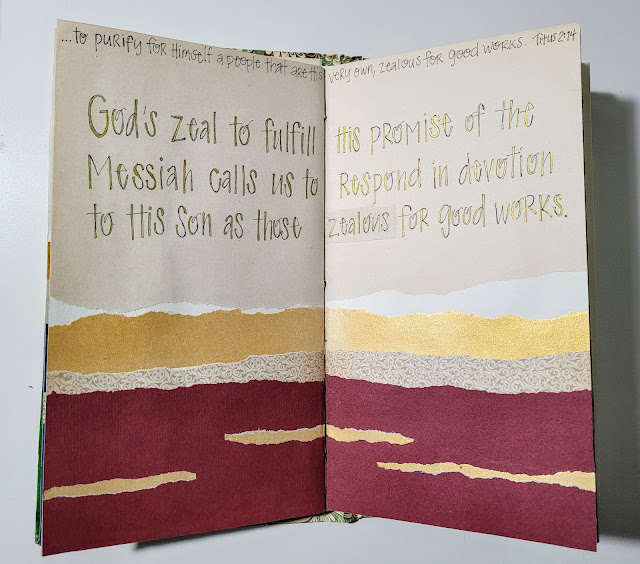 ...to purify for Himself a people that are His very own, zealous for good works. Titus 2:14
God's zeal to fulfill His promise of the
Messiah calls us to respond in devotion
to His Son as those zealous for good works.